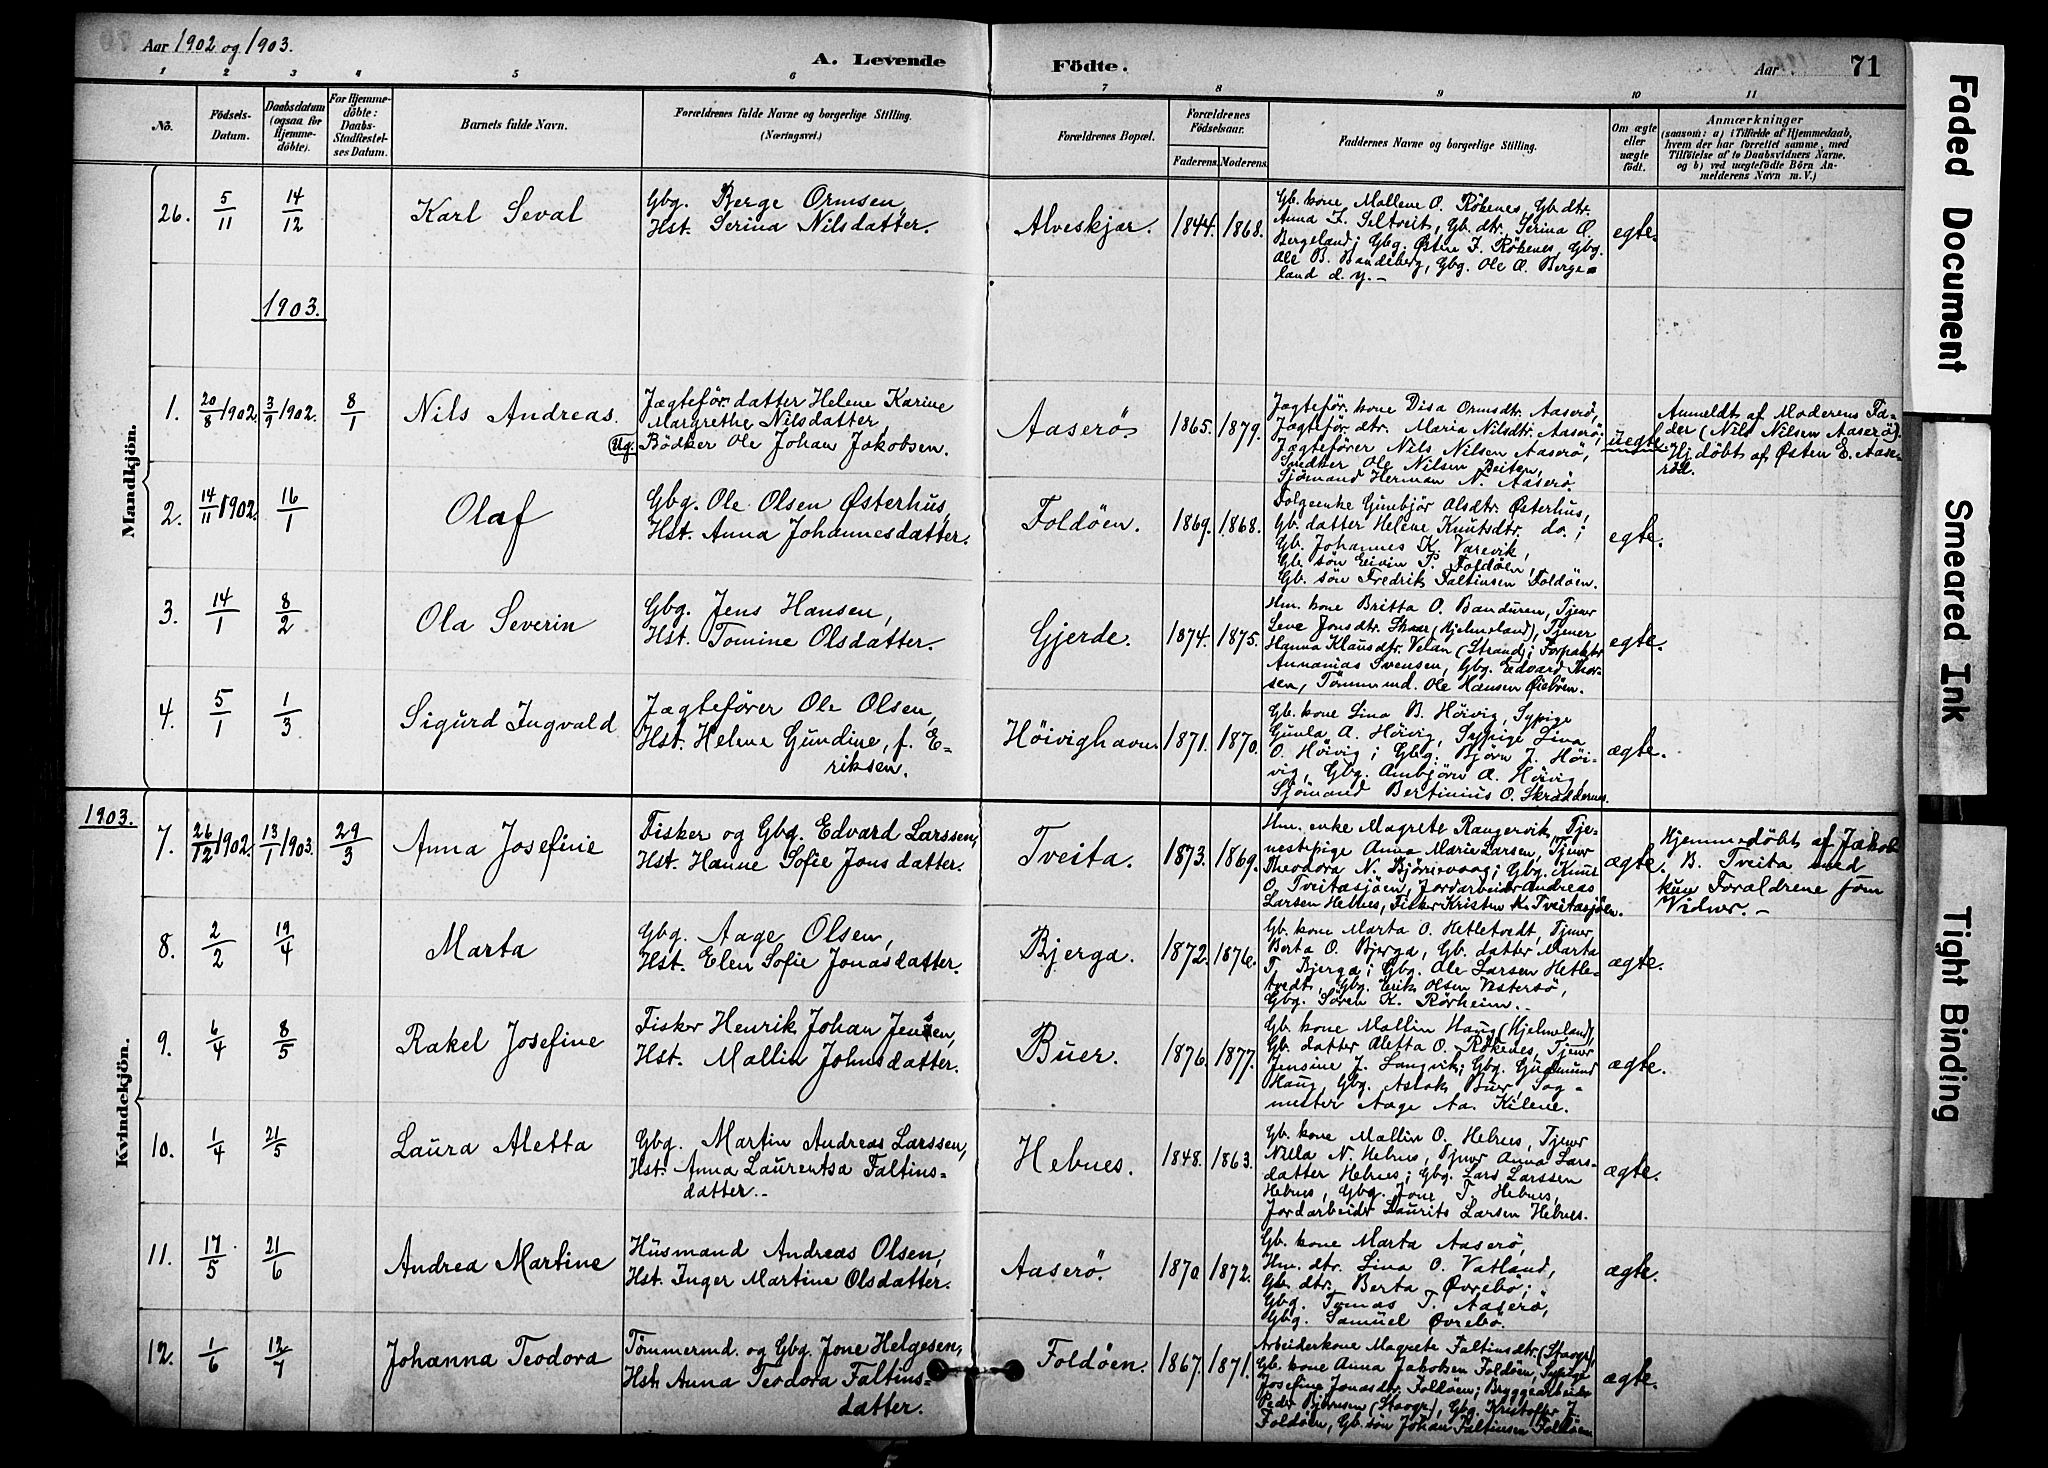 Aar 1902 og 1903.
A. Levende
Födte.
Aar
71
1 2 3 4 5 6 7 8 9 10 11
No.
Födsels-
Datum.
Daabsdatum
(ogsaa for
Hjemme-
döbte).
For Hjemme-
döbte:
Daabs-
Stadfæstel-
ses Datum.
Barnets fulde Navn.
Forældrenes fulde Navne og borgerlige Stilling.
(Næringsvei.)
Forældrenes Bopæl.
Forældrenes
Födselsaar.
Faderens. Moderens.
Faddernes Navne og borgerlige Stilling.
Om ægte
eller
uægte
födt.
Anmærkninger
(saasom: a) i Tilfælde af Hjemmedaab,
hvem der har forrettet samme, med
Tilföielse af to Daabsvidners Navne.
og b) ved uægtefödte Börn An-
melderens Navn m. V.)
Mandkjön.
26. 5/11 14/12 Karl Seval
Gbg. Berge Ormsen,
Hst. Serina Nilsdatter.
Alveskjær. 1844. 1868.
Gb. kone Mallene O. Rökenes, Gb. dtr.
Anna I. Seltveit, Gb. dtr. Serina O.
Bergeland; Gbg. Østen I. Rökenes, Gbg.
Ole B. Bandeberg, Gbg. Ole O. Berge-
land d. y. –
egte.
1903.
1. 20/8 1902. 3/9 1902. 8/1 Nils Andreas.
Jægtefør. datter Helene Karine
Margrethe Nilsdatter,
Ug. Bödker Ole Johan Jakobsen.
Aaserö. 1865. 1879.
Jægtefør. kone Disa Ormsdtr. Aaserö,
Jægtefør. dtr. Maria Nilsdtr. Aaserö;
Jægtefører Nils Nilsen Aaserö,
Snedker Ole Nilsen Beiten,
Sjömand Herman N. Aaserö.
uegte
Anmeldt af Moderens Fa-
der (Nils Nilsen Aaserö).
Hj. döbt af Østen E. Aase-
röd.
2. 14/11 1902. 16/1 Olaf
Gbg. Ole Olsen Østerhus,
Hst. Anna Johannesdatter.
Foldöen. 1869. 1868.
Folgeenke Gunbjör Alsdtr. Østerhus,
Gb. datter Helene Knutsdtr. do.;
Gb. Johannes K. Varevik,
Gb. sön Eivin P. Foldöen,
Gb. sön Fredrik Faltinsen Foldöen.
egte.
3. 14/1 8/2 Ola Severin
Gbg. Jens Hansen,
Hst. Tomine Olsdatter.
Gjerde. 1874. 1875.
Hm. kone Britta O. Banduren, Tjener
Seve Jonsdtr. Skaar (Hjelmeland), Tjener
Hanna Klausdtr. Velan (Strand); Forpakter
Annanias Svensen, Gbg. Edvard Thor-
sen, Tömmermd. Ole Hansen Øieböen.
egte.
4. 5/1 1/3 Sigurd Ingvald
Jægtefører Ole Olsen,
Hst. Helene Gundine, f. E-
riksen.
Höivighavn 1871. 1870.
Gb. kone Lina B. Höivig, Sypige
Gunla A. Höivig, Sypige Lina
O. Höivig; Gbg. Björn J. Höi-
vig, Gbg. Ambjörn A. Höivig,
Sjömand Bertinius O. Skraddernes.
ægte.
1903.
Kvindekjön.
7. 26/12 1902. 13/1 1903. 29/3 Anna Josefine
Fisker og Gbg. Edvard Larssen,
Hst. Hanne Sofie Jonsdatter.
Tveita. 1873. 1869.
Hm. enke Magrete Rangervik, Tje-
nestepige Anna Marie Larsen, Tjener
Theodora N. Björnevaag; Gbg. Knut
O. Tveitasjöen, Jordarbeider Andreas
Larsen Hebnes, Fisker Kristen K. Tveitasjöen.
ægte.
Hjemmedöbt af Jakob
B. Tveita med
kun Foraldrene som
Vidner. –
8. 2/2 19/4 Marta
Gbg. Aage Olsen,
Hst. Elen Sofie Jonasdatter.
Bjerga. 1872. 1876.
Gb. kone Marta O. Hetletvedt, Tjener
Berta O. Bjerga, Gb. datter Marta
T. Bjerga; Gbg. Ole Larsen Hetle-
tvedt, Gbg. Erik Olsen Vestersö,
Gbg. Sören K. Rörheim.
ægte.
9. 6/4 8/5 Rakel Josefine
Fisker Henrik Johan Jensen,
Hst. Mallin Johnsdatter.
Buer. 1876. 1877.
Gb. kone Mallin Haug (Hjelmeland),
Gb. datter Aletta O. Rökenes, Tjener
Jensine J. Langvik; Gbg. Gudmund
Haug, Gbg. Aslak Buer, Sag-
mester Aage Aa. Kilene.
ægte.
10. 1/4 21/5 Laura Aletta
Gbg. Martin Andreas Larssen,
Hst. Anna Laurentsa Faltins-
datter.
Hebnes. 1848. 1863.
Gb. kone Mallin O. Hebnes, Tjener
Nilla N. Hebnes, Tjener Anna Lars-
datter Hebnes; Gbg. Lars Larssen
Hebnes, Gbg. Jone T. Hebnes,
Jordarbeider Laurits Larsen Hebnes.
ægte.
11. 17/5 21/6 Andrea Martine
Husmand Andreas Olsen,
Hst. Inger Martine Olsdatter.
Aaserö. 1870. 1872.
Gb. kone Marta Aaserö,
Hm. dtr. Lina O. Vatland,
Gb. dtr. Berta Øvrebö;
Gbg. Tomas T. Aaserö,
Gbg. Samuel Øvrebö.
ægte.
12. 1/6 12/7 Johanna Teodora
Tömmermd. og Gbg. Jone Helgesen,
Hst. Anna Teodora Faltins-
datter.
Foldöen. 1867. 1871.
Arbeiderkone Magrete Faltinsdtr. (Skaagr),
Gb. kone Anna Jakobsen Foldöen, Sypige
Josefine Jonasdtr. Foldöen; Bryggearbeider
Peder Björnsen (Skaagr), Gbg. Kristoffer J.
Foldöen, Gb. sön Johan Faltinsen Foldöen
ægte.
Faded Document
Smeared Ink
Tight Binding